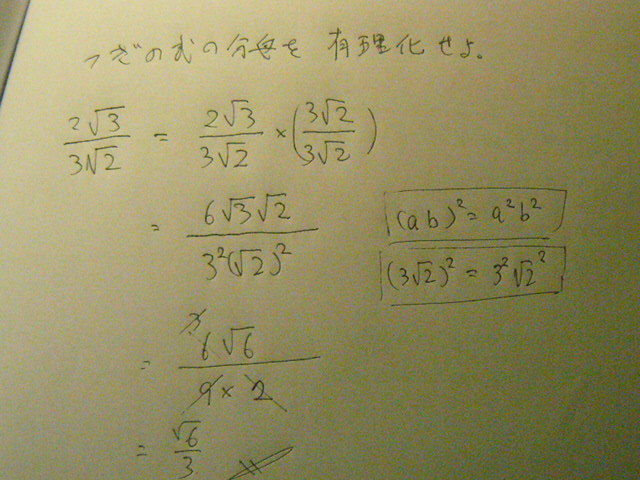 つぎの式の分母を 有理化せよ。
2√3/3√2 = 2√3/3√2 × (3√2/3√2)
= 6√3√2/3²(√2)²
(ab)² = a²b²
(3√2)² = 3²√2²
= 6√6/9×2
= √6/3